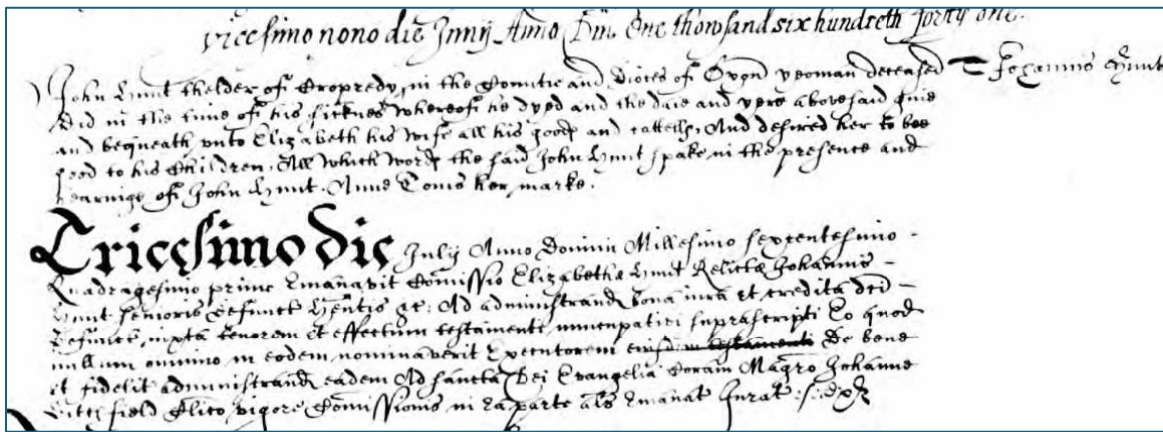 vicesimo nono die Junij Anno Dni One thowsand six hundreth forty one.
John Hunt thelder of Cropredy, in the Countie and dioces of Oxon yeoman deceased Johannis Hunt
did in the time of his sicknes whereof he dyed and the daie and yere abovesaid give
and bequeath unto Elizabeth his wife all his goods and cattells, And desired her to bee
good to his Children, All which words the said John Hunt spake in the presence and
hearinge of John Hunt. Anne Toms her marke.
Tricesimo die July Anno Domini Millesimo sexcentesimo
Quadragesimo primo Emanavit Comissio Elizabethæ Hunt Relictæ Johannis
Hunt senioris defunct hentis &c: Ad administrand bona iura et credita dci
defunct, iuxta tenorem et effectum testamenti nuncupativi suprascripti Eo quod
nullum omnino in eodem nominaverit Executorem De bene
et fidelit administrand eadem Ad sancta Dei Evangelia Coram Magro Johanne
Clico vigore Comissionis in ea parte als Emanat Jurat